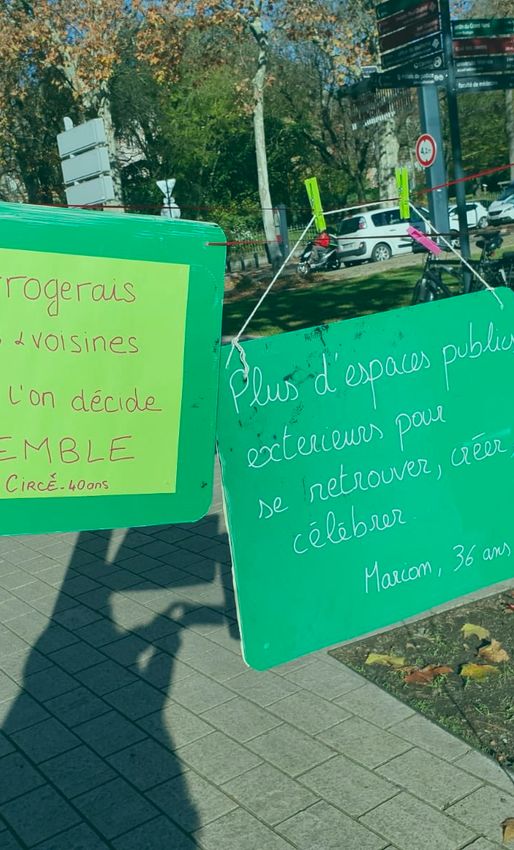 rogerais
& voisines
l'on décide
EMBLE
CIRCÉ-40ans
Plus d'espaces publics
exterieurs pour
se retrouver, créer,
célébrer.
Marion, 36 ans
4,2m